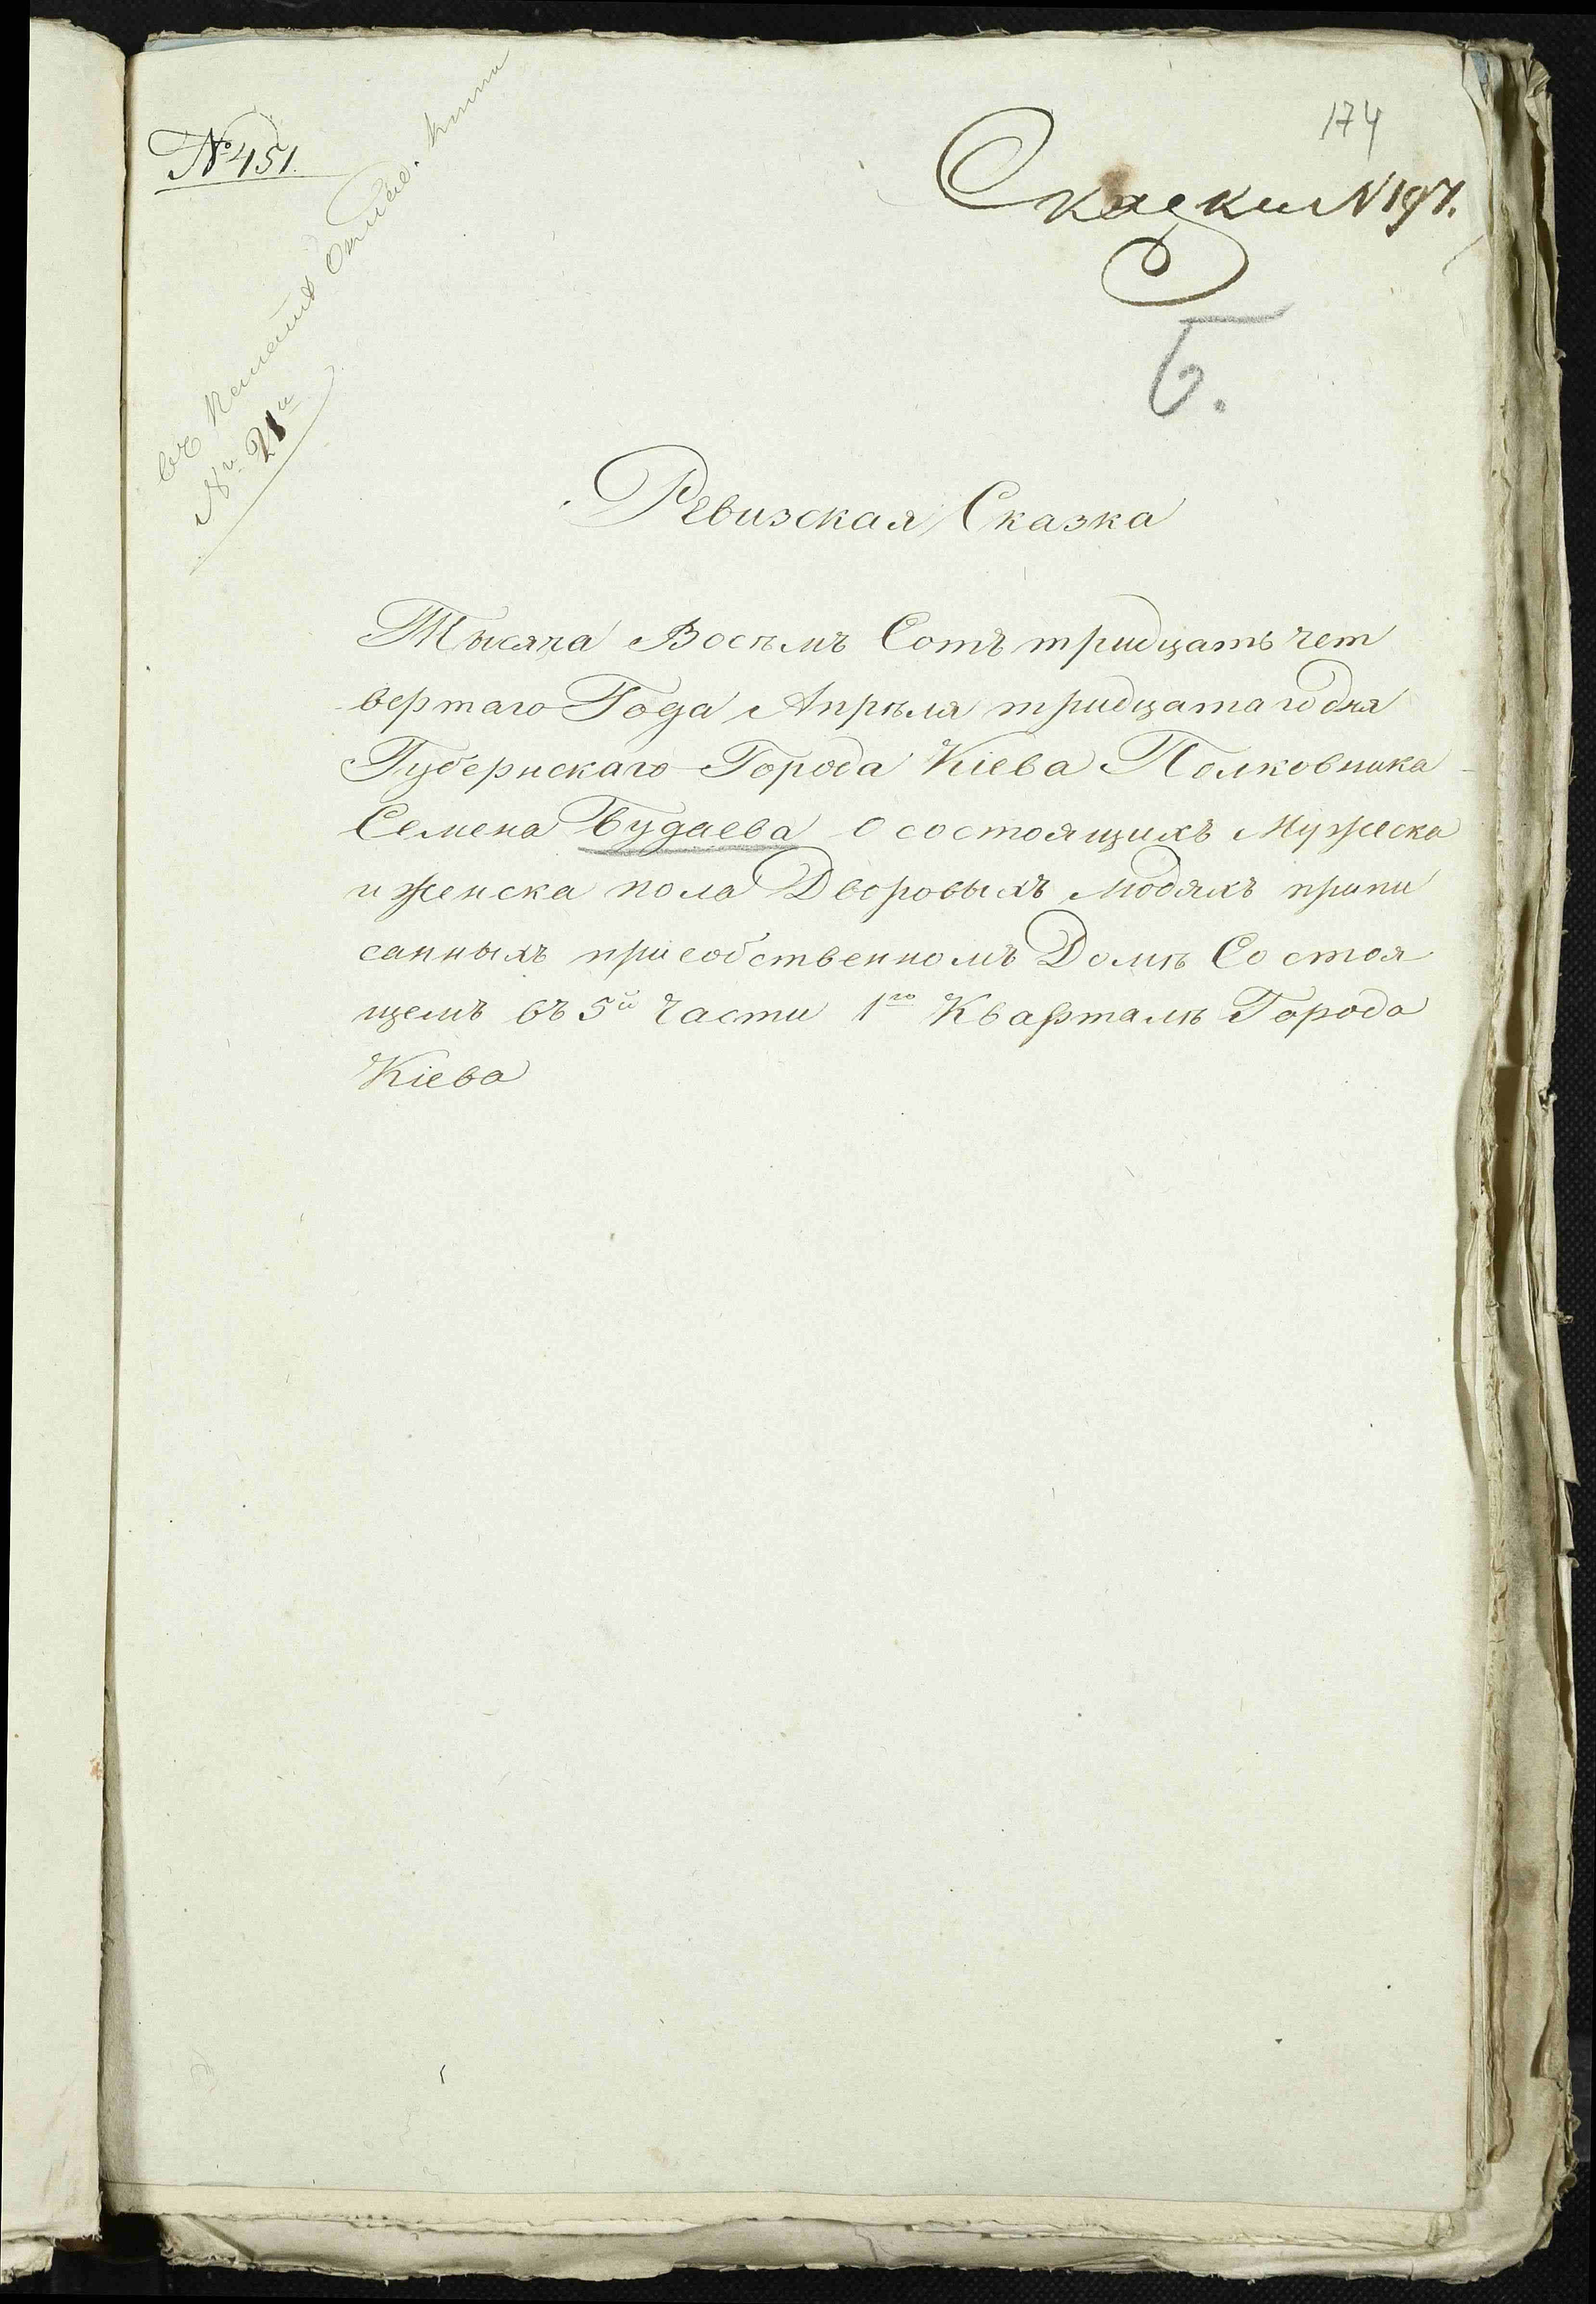 174
№ 451.
Скаски N 197.
Б.
въ
№ 21й
Ревизская Сказка
Тысяча Восемъ Сотъ тридцать чет
вертаго Года Апрѣля тридцатаго дня
Губернскаго Города Кіева Полковника
Семена Будаева о состоящихъ Мужеска
и женска пола Дворовыхъ людяхъ припи
санныхъ при собственномъ Домѣ Состоя
щемъ въ 5й Части 1го Кварталѣ Города
Кіева